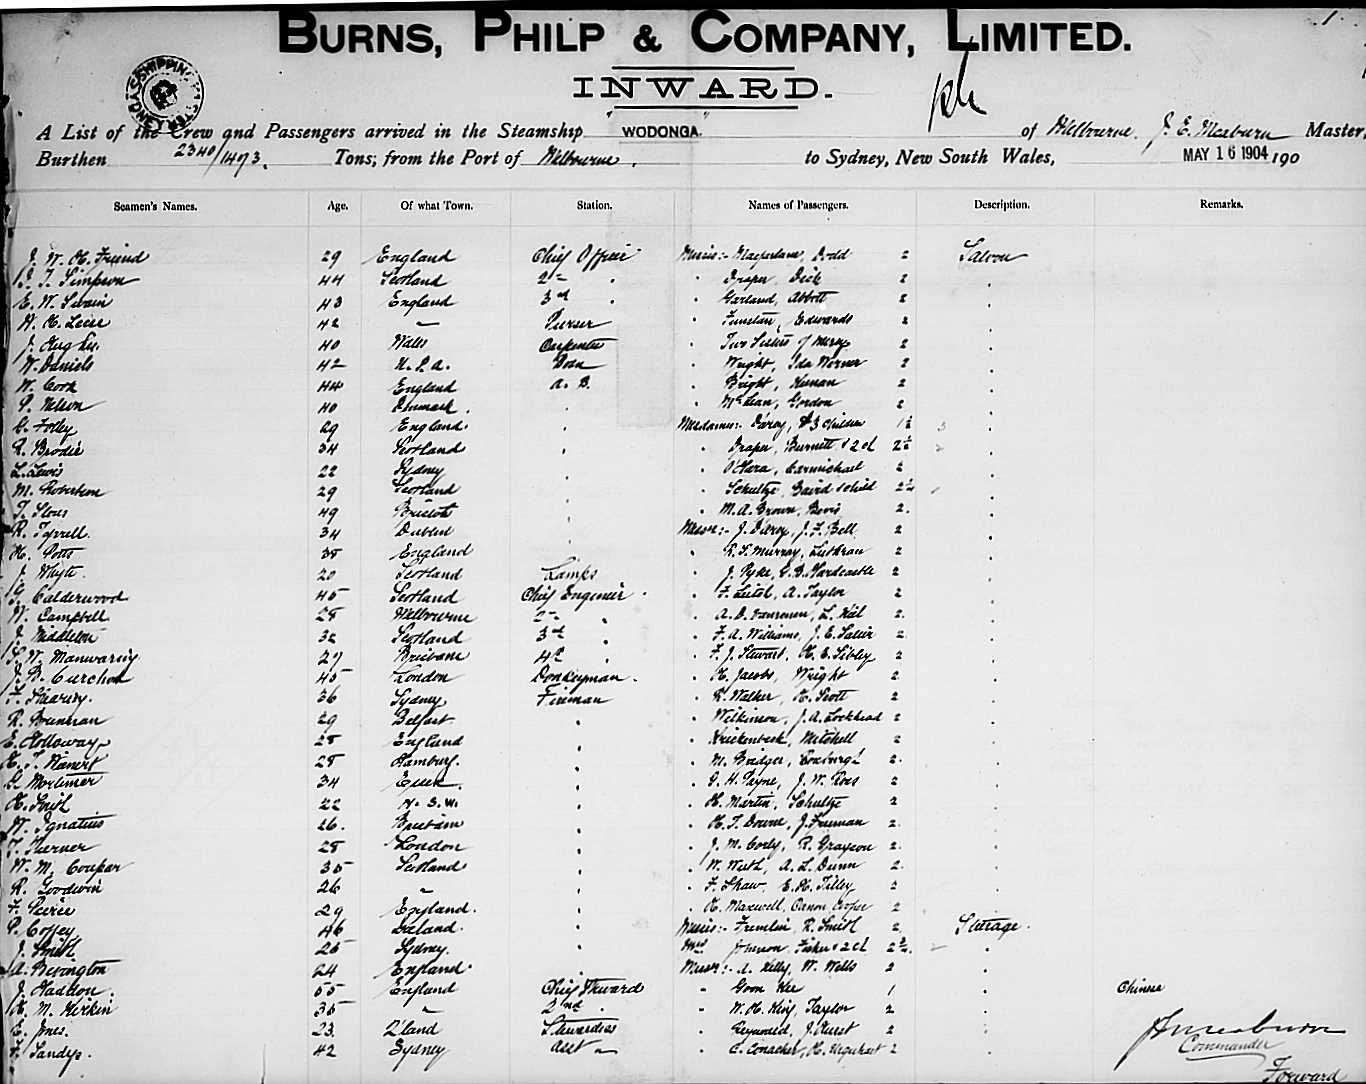 BURNS, PHILP & COMPANY, LIMITED.
INWARD.
SHIPPING MASTER SYDNEY
A List of the Crew and Passengers arrived in the Steamship "WODONGA" of Melbourne. J. E. Meaburn Master,
Burthen 2340/1473. Tons; from the Port of Melbourne. to Sydney, New South Wales, MAY 16 1904 190
Seamen's Names. Age. Of what Town. Station. Names of Passengers. Description. Remarks.
J. W. H. Friend 29 England Chief Officer Misses:- Macfarlane, Dodd 2 Saloon
J. Simpson 44 Scotland 2nd " Draper, Dick 2 "
E. W. Swain 43 England 3rd " " Garland, Abbott 2 "
42 " Purser " Edwards 2 "
J. Hughes. 40 Wales Carpenter " Two Sisters of Mercy 2 "
W. Daniels 42 U.S.A. Bosn " Wright, Ida Werner 2 "
W. Cook 44 England A. B. " Bright, 2 "
P. Nelson 40 Denmark. " " McLean, Gordon 2 "
C. Folley 29 England. " Mesdames:- Darcy, & 3 children "
R. Brodie 34 Scotland " " Draper, Burnett & 2 ch "
L. Lewis 22 Sydney " " O'Hara, Carmichael 2 "
M. Robertson 29 Scotland " " Schultze, Baird & child "
49 Bristol " " M. A. Brown, 2. "
R. Tyrrell. 34 Dublin " Messrs:- J. Darcy, J. F. Bell 2 "
H. Potts 38 England " " R. S. Murray, 2 "
J. Whyte. 20 Scotland Lamps " J. Pyke, G. B. Hardcastle 2 "
G. Calderwood 45 Scotland Chief Engineer. " A. Taylor 2 "
W. Campbell 28 Melbourne 2nd " " 2. "
J. Middleton 32 Scotland 3rd " " F. A. Williams, 2 "
W. Manwaring 27 Brisbane 4th " " F. J. Stewart, H. E. Sibley 2 "
45 London Donkeyman. " H. Jacobs, Wright 2 "
36 Sydney Fireman " R. Walker, H. Scott 2 "
R. Brennan 29 Belfast " " Wilkinson, J. A. Lockhead 2 "
E. Holloway 28 England " " Krickenbeek, Mitchell 2 "
28 Hamburg. " " M. Bridger, Roxburgh 2. "
Mortimer 34 Essex. " " G. H. Payne, J. W. Ross 2 "
H. Smith 22 N. S. W. " " H. Martin, Schultze 2 "
W. Ignatius 26. " " J. Freeman 2. "
T. Turner 28 London " " R. Grayson 2. "
W. M. Coupar 35 Scotland " " W. A. L. Dunn 2. "
R. Goodwin 26 " " " F. Shaw, E. H. Tilley 2 "
29 England. " " H. Maxwell, Canon 2 "
P. Coffey 46 Ireland. " Misses:- R. Smith 2. Steerage.
J. Smith 25 Sydney. " Mrs Johnson, Fisher & 2 ch "
A. Bevington 24 England. " Messrs:- A. Kelly, W. Wells 2 "
J. Haddon. 55 England Chief Steward " Goon Kee 1 " Chinese
H. M. Kirkin 35 " 2nd " " W. H. King, Taylor 2 "
E. Jones. 23 Q'land Stewardess " J. Hurst 2 "
Sandys. 42 Sydney Asst " " C. Conacher, H. Urquhart 2 "
J. E. Meaburn
Commander
Forward